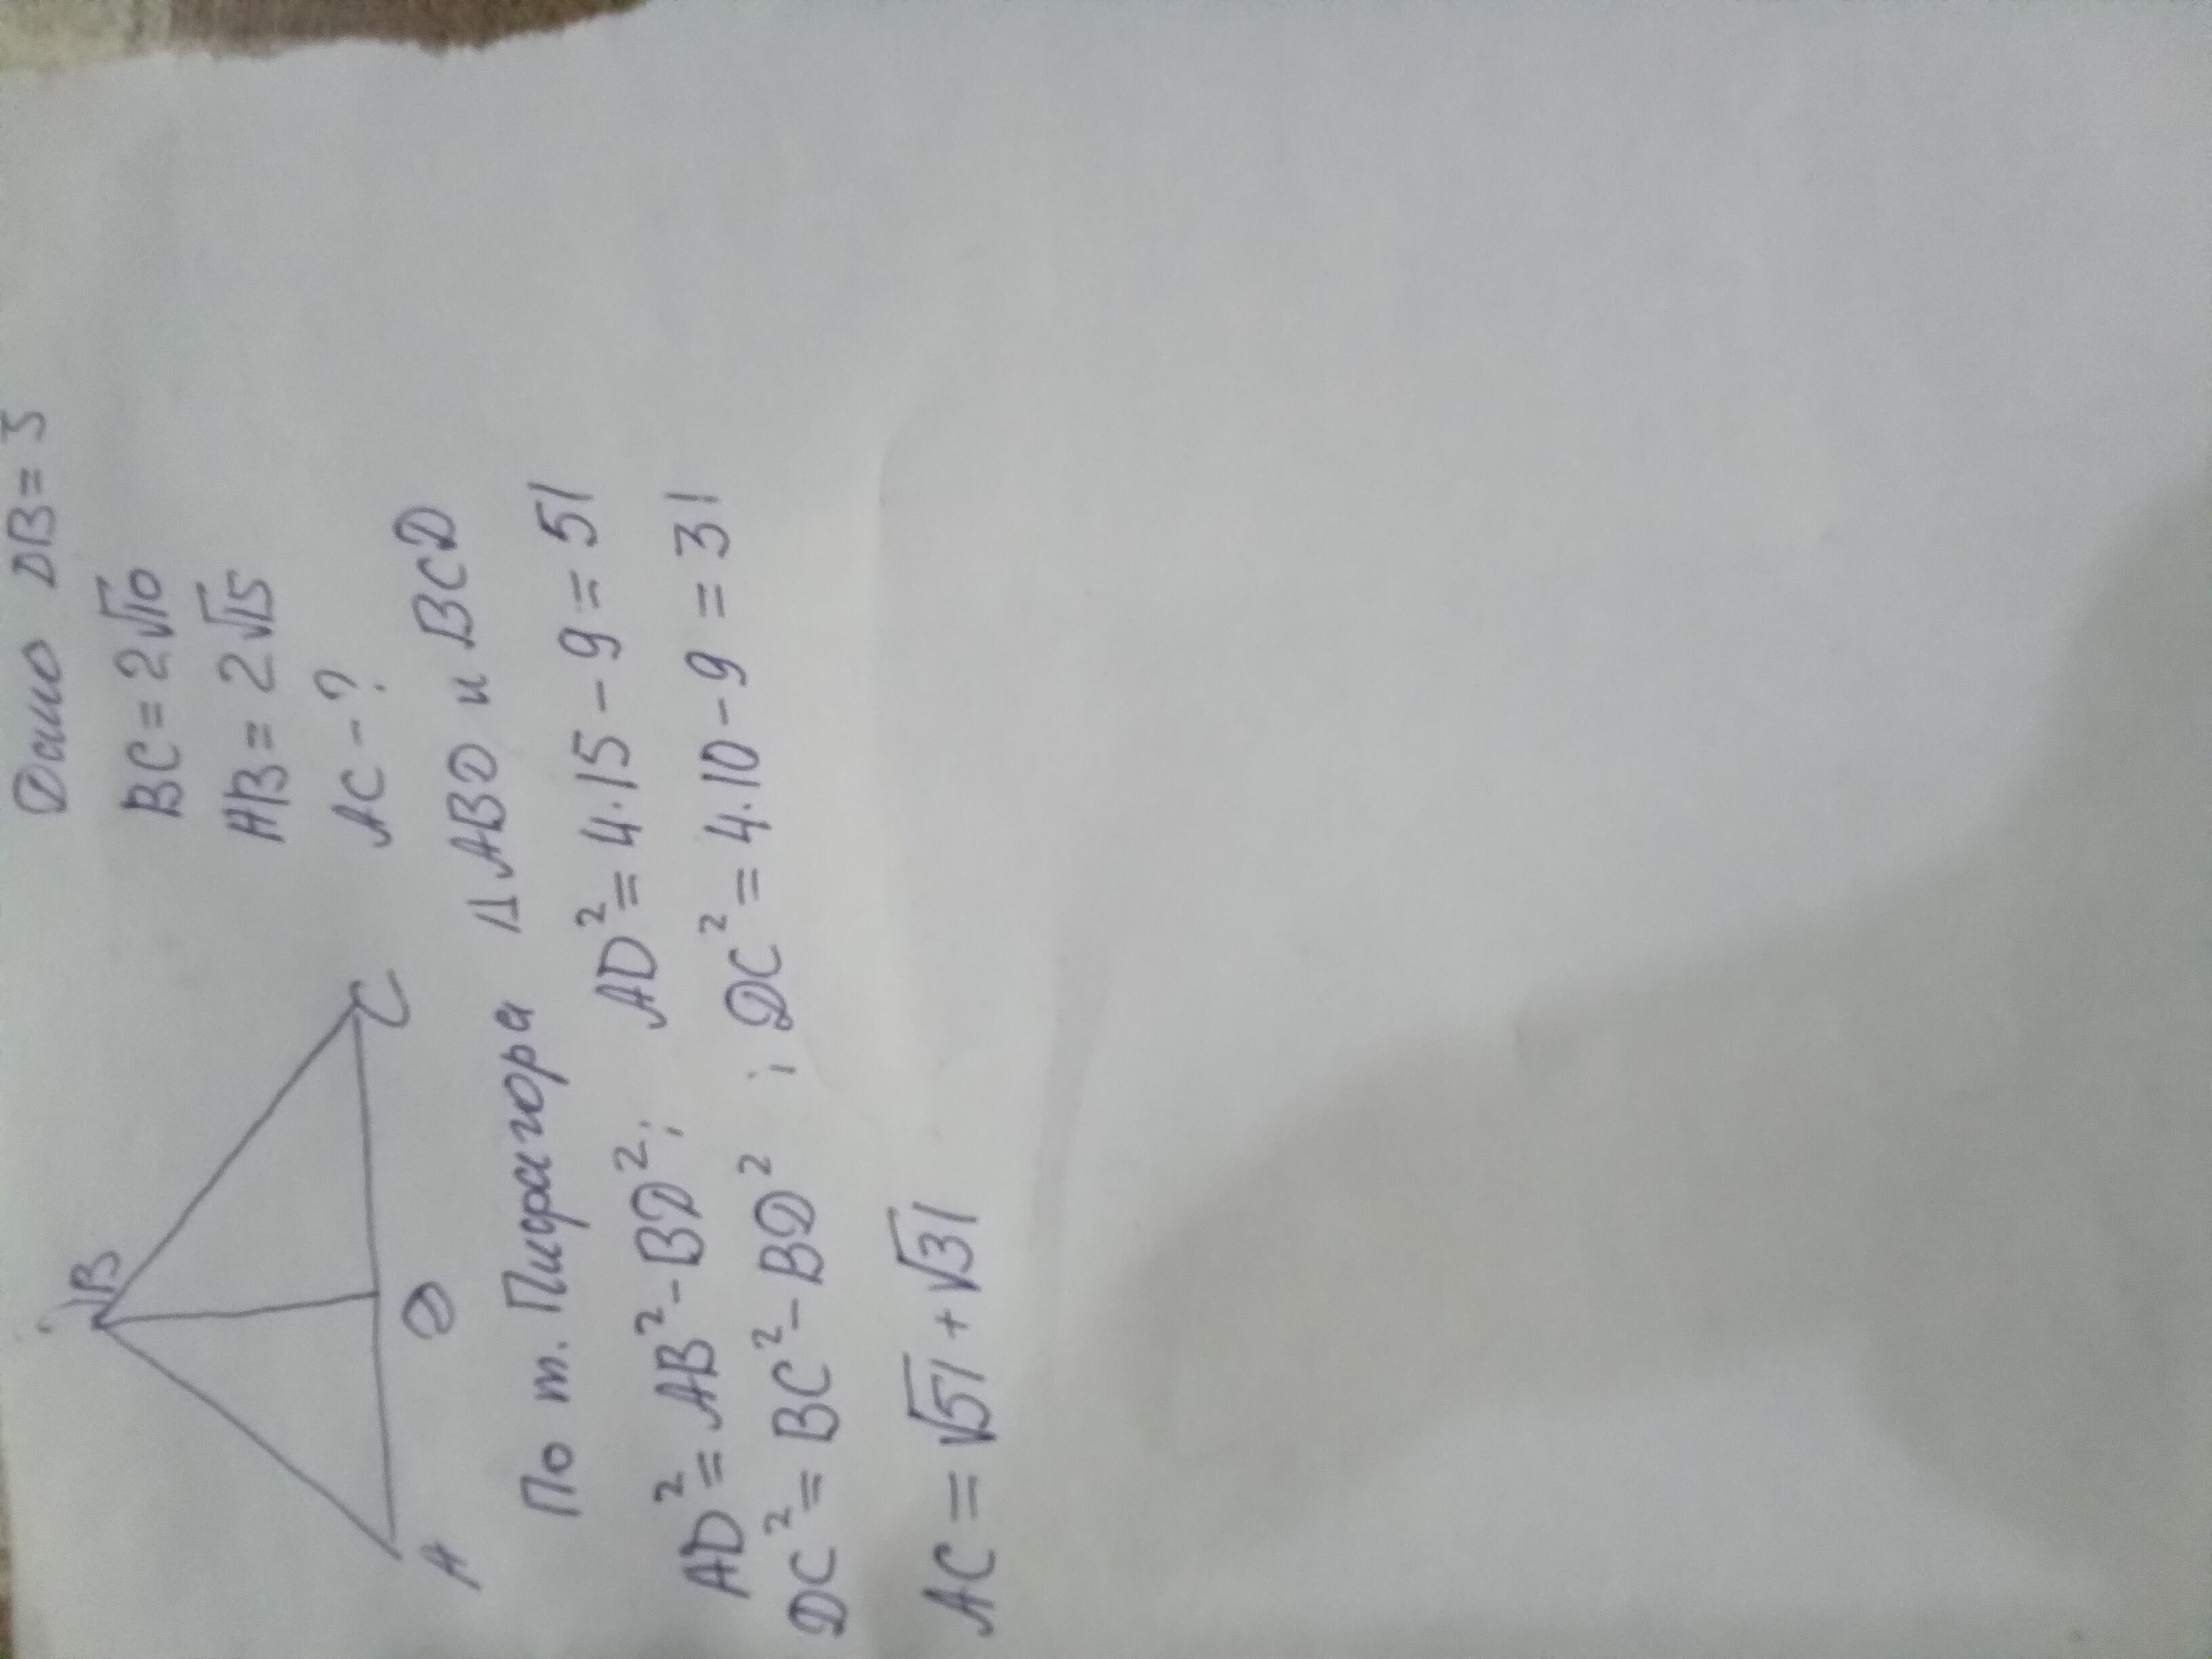 B
A
D
C
Дано DB = 3
BC = 2√10
AB = 2√15
AC - ?
По т. Пифагора Δ ABD и BCD
AD² = AB² - BD²; AD² = 4·15 - 9 = 51
DC² = BC² - BD² ; DC² = 4·10 - 9 = 31
AC = √51 + √31